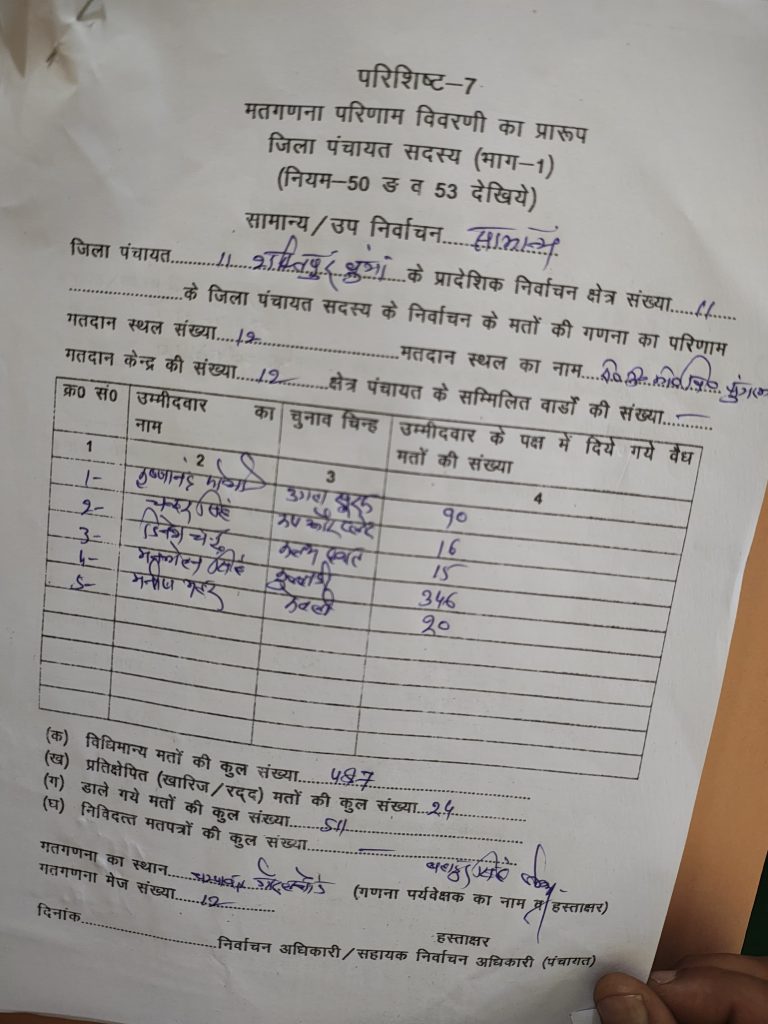 परिशिष्ट–7
मतगणना परिणाम विवरणी का प्रारूप
जिला पंचायत सदस्य (भाग–1)
(नियम–50 ङ व 53 देखिये)
सामान्य/उप निर्वाचन.....सामान्य
जिला पंचायत.........11 शक्तिपुर बुंगा.....के प्रादेशिक निर्वाचन क्षेत्र संख्या.....11......
........................के जिला पंचायत सदस्य के निर्वाचन के मतों की गणना का परिणाम
गतदान स्थल संख्या....12.............................मतदान स्थल का नाम....
गतदान केन्द्र की संख्या....12......क्षेत्र पंचायत के सम्मिलित वार्डों की संख्या.....—.....
क्र0 सं0 उम्मीदवार का नाम चुनाव चिन्ह उम्मीदवार के पक्ष में दिये गये वैध मतों की संख्या
1 2 3 4
1- कृष्णानंद जोशी उगता सूरज 90
2- चन्दर सिंह कप और प्लेट 16
3- दिनेश चन्द्र कलम दवात 15
4- मनमोहन सिंह कुल्हाड़ी 346
5- मनीष 20
(क) विधिमान्य मतों की कुल संख्या.....487
(ख) प्रतिक्षेपित (खारिज/रद्द) मतों की कुल संख्या..24
(ग) डाले गये मतों की कुल संख्या.....511
(घ) निविदत्त मतपत्रों की कुल संख्या.......—
गतगणना का स्थान.....चम्पावत
गतगणना मेज संख्या.....12 (गणना पर्यवेक्षक का नाम व हस्ताक्षर)
हस्ताक्षर
दिनांक..............................निर्वाचन अधिकारी/सहायक निर्वाचन अधिकारी (पंचागत)